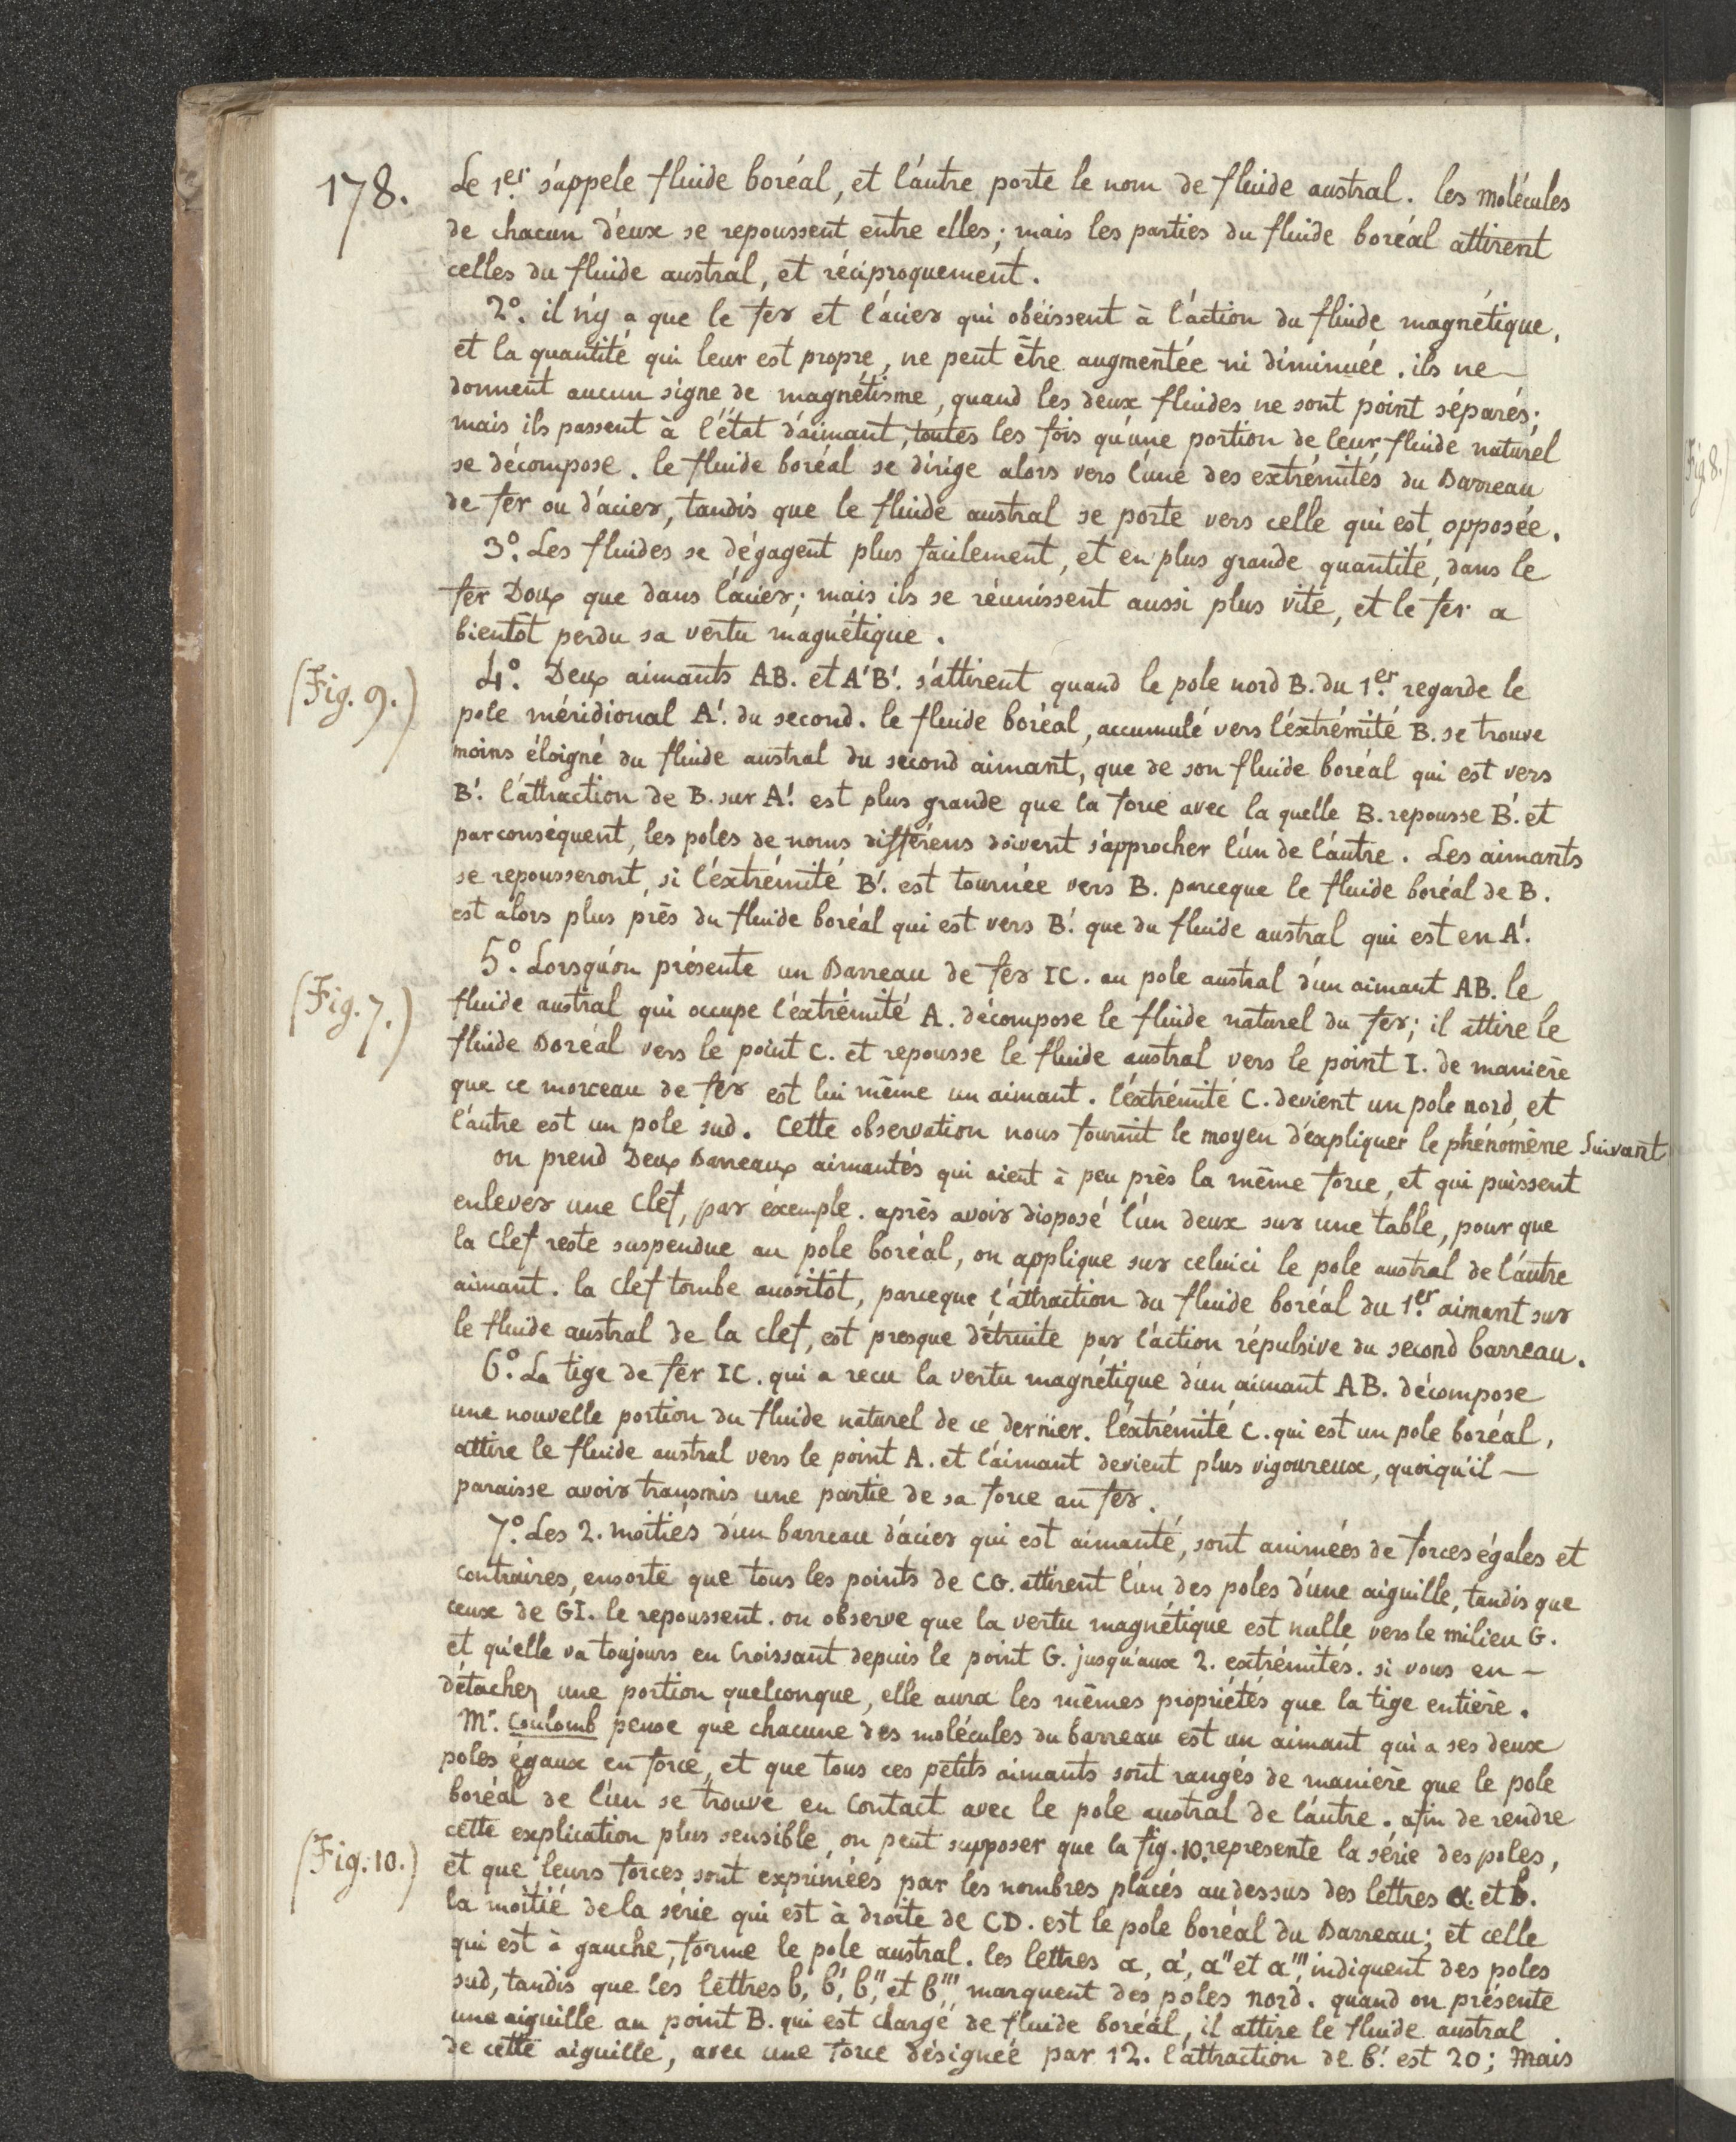 178. Le 1er. s'appele fluide boréal, et l'autre porte le nom de fluide austral. les molécules
de chacun d'eux se repoussent entre elles; mais les parties du fluide boréal attirent
celles du fluide austral, et réciproquement.
2º. il n'y a que le fer et l'acier qui obéissent à l'action du fluide magnétique,
et la quantité qui leur est propre, ne peut être augmentée ni diminuée. ils ne —
donnent aucun signe de magnétisme, quand les deux fluides ne sont point séparés;
mais ils passent à l'état d'aimant, toutes les fois qu'une portion de leur fluide naturel
se décompose. le fluide boréal se dirige alors vers l'une des extrémités du Barreau
de fer ou d'acier, tandis que le fluide austral se porte vers celle qui est opposée.
3º. Les fluides se dégagent plus facilement, et en plus grande quantité, dans le
fer Doux que dans l'acier; mais ils se réunissent aussi plus vite, et le fer a
bientôt perdu sa vertu magnétique.
(Fig. 9.) 4º. Deux aimants AB. et A'B'. s'attirent quand le pole nord B. du 1er. regarde le
pole méridional A'. du second. le fluide boréal, accumulé vers l'éxtrémité B. se trouve
moins éloigné du fluide austral du second aimant, que de son fluide boréal qui est vers
B'. l'attraction de B. sur A'. est plus grande que la force avec la quelle B. repousse B'. et
par conséquent, les poles de noms différens doivent s'approcher l'un de l'autre. Les aimants
se repousseront, si l'éxtrémité B'. est tournée vers B. parceque le fluide boréal de B.
est alors plus près du fluide boréal qui est vers B'. que du fluide austral qui est en A'.
(Fig. 7.) 5º. Lorsqu'on présente un Barreau de fer IC. au pole austral d'un aimant AB. le
fluide austral qui occupe l'éxtrémité A. décompose le fluide naturel du fer; il attire le
fluide Boréal vers le point C. et repousse le fluide austral vers le point I. de manière
que ce morceau de fer est lui même un aimant. l'éxtrémité C. devient un pole nord, et
l'autre est un pole sud. Cette observation nous fournit le moyen d'expliquer le phénomène Suivant
on prend Deux Barreaux aimantés qui aient à peu près la même force, et qui puissent
enlever une Clef, par éxemple. après avoir disposé l'un deux sur une table, pour que
la Clef reste suspendue au pole boréal, on applique sur celuici le pole austral de l'autre
aimant. la Clef tombe aussitôt, parceque l'attraction du fluide boréal du 1er. aimant sur
le fluide austral de la clef, est presque détruite par l'action répulsive du second barreau.
6º. La tige de fer IC. qui a recu la vertu magnétique d'un aimant AB. décompose
une nouvelle portion du fluide naturel de ce dernier. l'éxtrémité C. qui est un pole boréal,
attire le fluide austral vers le point A. et l'aimant devient plus vigoureux, quoiqu'il —
paraisse avoir transmis une partie de sa force au fer.
7º. Les 2. moitiés d'un barreau d'acier qui est aimanté, sont animées de forces égales et
contraires, ensorte que tous les points de CG. attirent l'un des poles d'une aiguille, tandis que
ceux de GI. le repoussent. on observe que la vertu magnétique est nulle vers le milieu G.
et qu'elle va toujours en Croissant depuis le point G. jusqu'aux 2. extrémités. si vous en —
détachez une portion quelconque, elle aura les mêmes propriétés que la tige entière.
Mr. Coulomb pense que chacune des molécules du barreau est un aimant qui a ses deux
poles égaux en force, et que tous ces petits aimants sont rangés de manière que le pole
boréal de l'un se trouve en Contact avec le pole austral de l'autre. afin de rendre
cette explication plus sensible, on peut supposer que la fig. 10. represente la série des poles,
(Fig. 10.) et que leurs forces sont exprimées par les nombres placés audessus des lettres a. et b.
la moitié de la série qui est à droite de CD. est le pole boréal du Barreau; et celle
qui est à gauche, forme le pole austral. les lettres a, a', a'' et a''', indiquent des poles
sud, tandis que les lettres b, b', b'', et b''', marquent des poles nord. quand on présente
une aiguille au point B. qui est chargé de fluide boréal, il attire le fluide austral
de cette aiguille, avec une force désignée par 12. l'attraction de b'. est 20; Mais
(Fig. 8.)